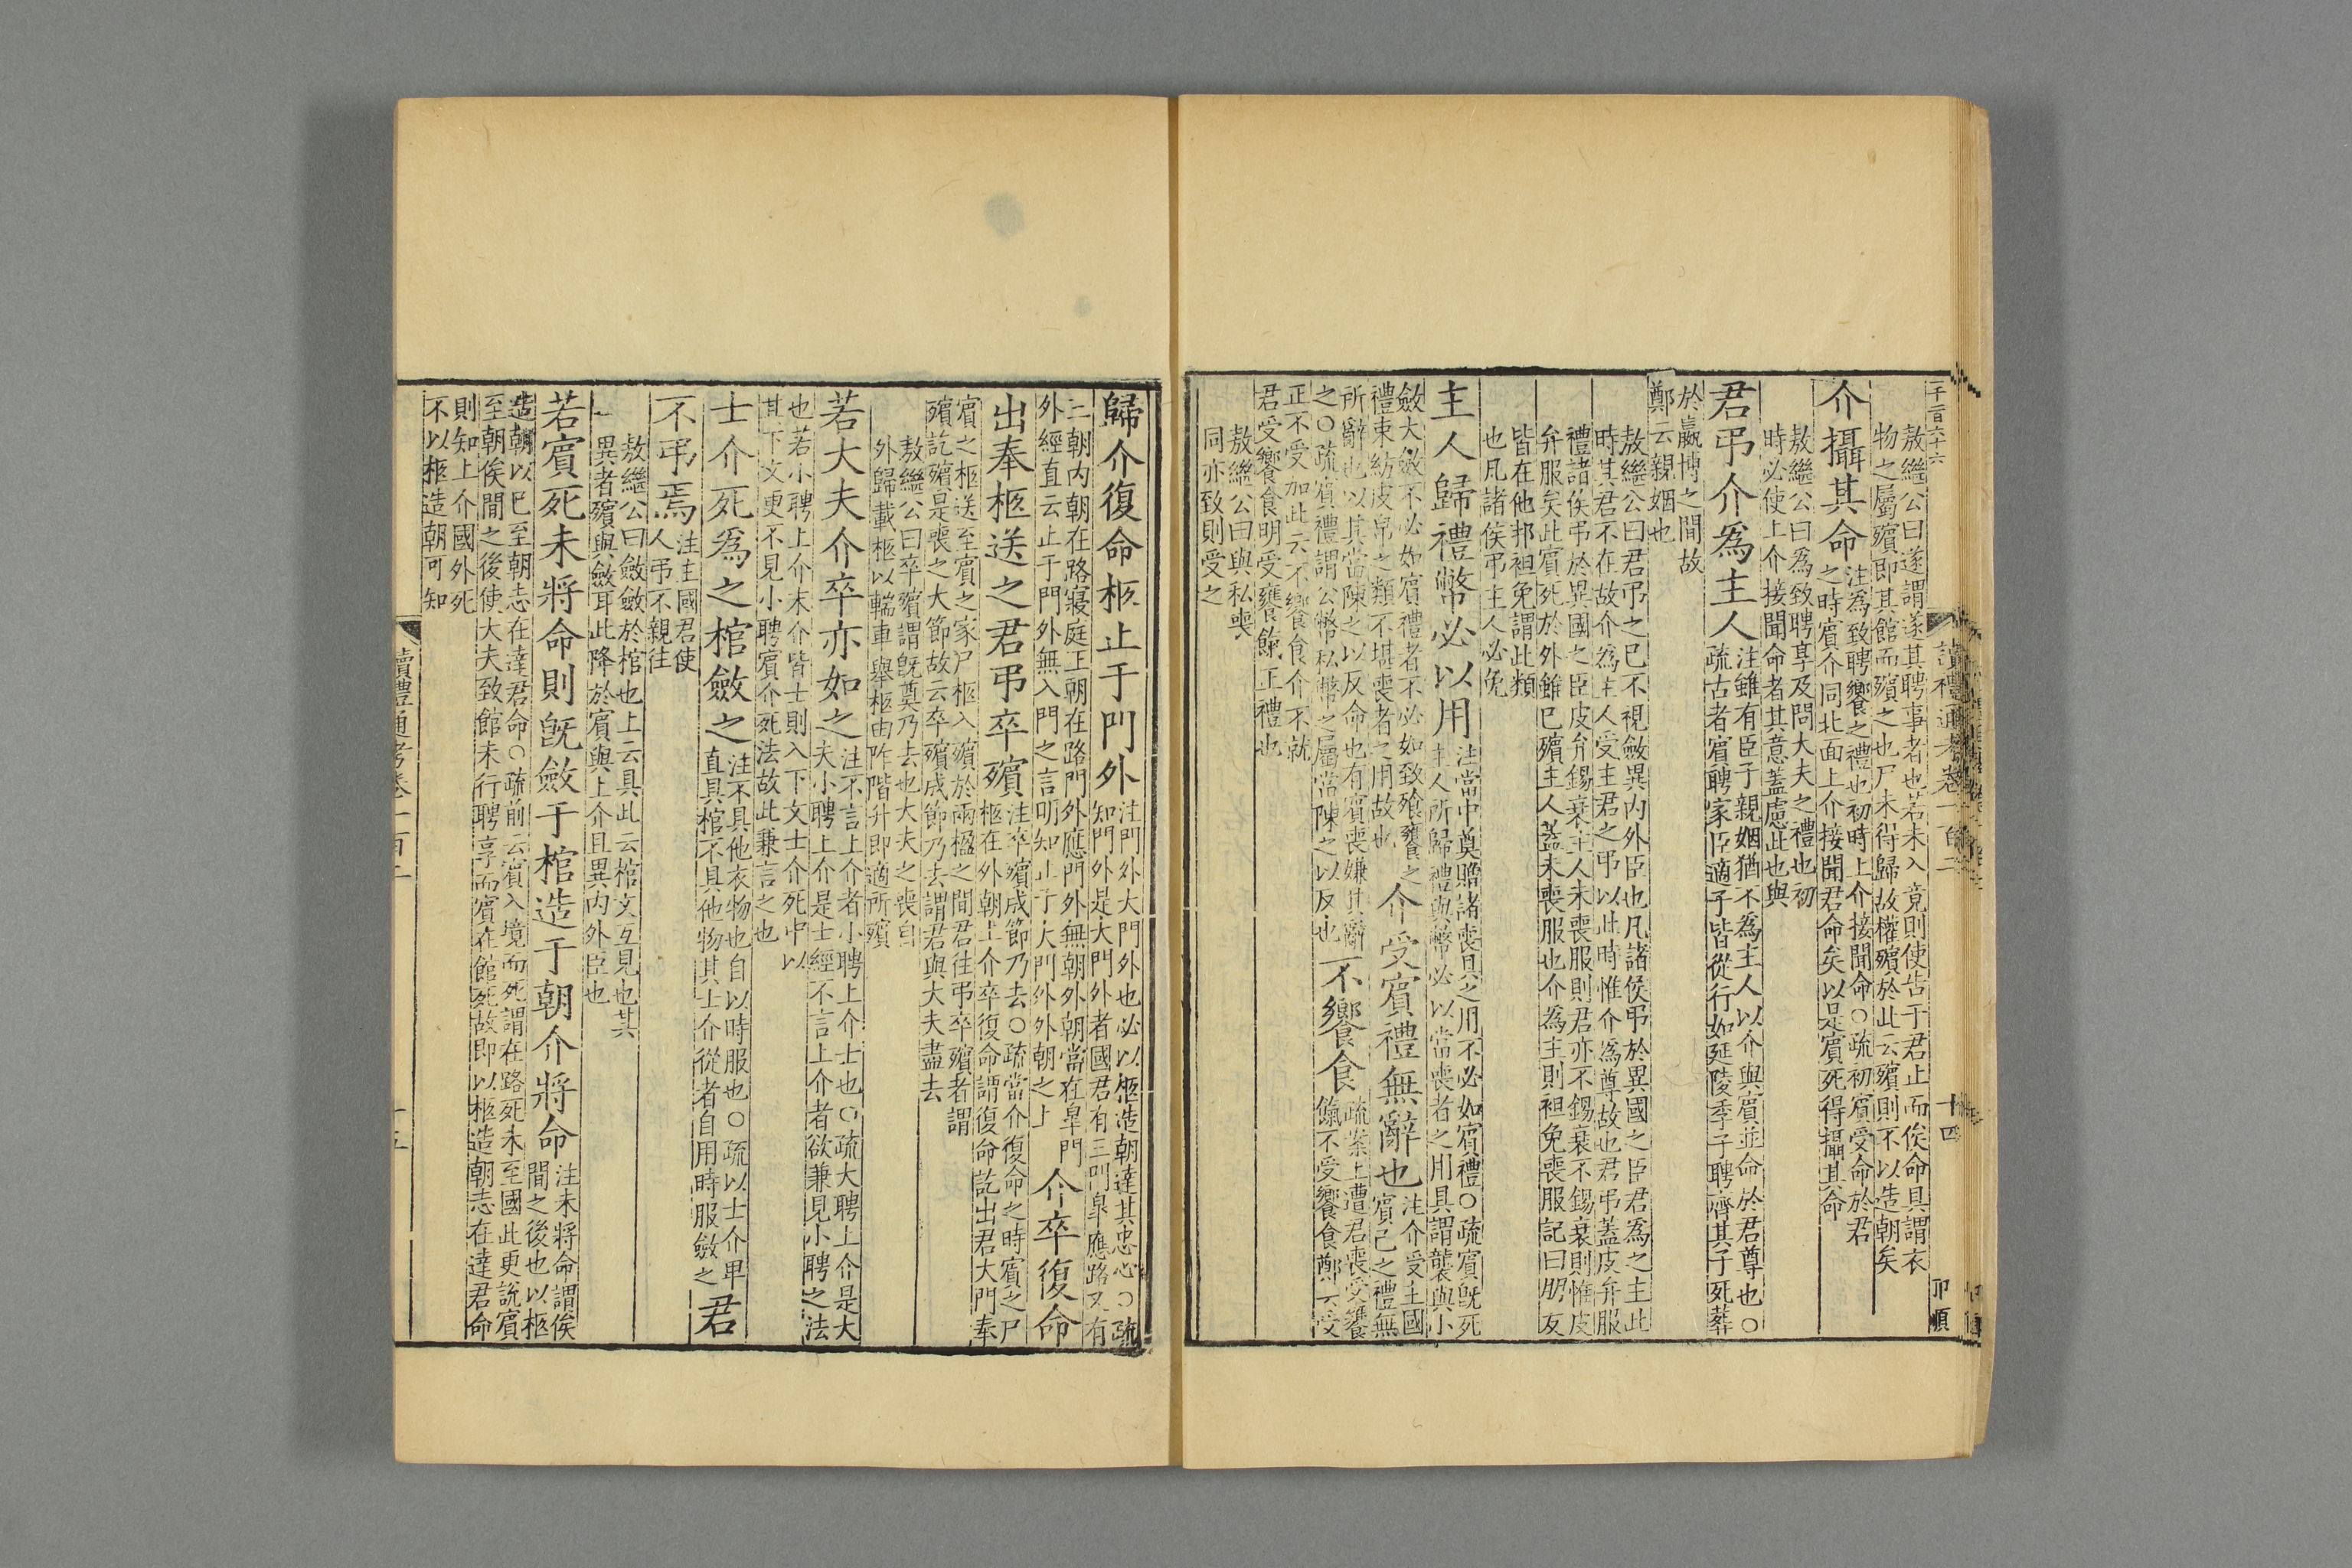 千二百六十六
讀禮通考卷一百二
十四
卬順
敖繼公曰遂謂遂其聘事者也若未入竟則使告于君止而俟命具謂衣
物之屬殯即其館而殯之也尸未得歸故權殯於此云殯則不以造朝矣
介攝其命
注為致聘饗之禮也初時上介接聞命○疏初賓受命於君
之時賓介同北面上介接聞君命矣以是賓死得攝其命
敖繼公曰為致聘享及問大夫之禮也初
時必使上介接聞命者其意蓋慮此也與
君弔介為主人
注雖有臣子親姻猶不為主人以介與賓並命於君尊也○
疏古者賓聘家臣適子皆從行如延陵季子聘齊其子死葬
於嬴博之間故
鄭云親姻也
敖繼公曰君弔之已不視斂異內外臣也凡諸侯弔於異國之臣君為之主此
時其君不在故介為主人受主君之弔以此時惟介為尊故也君弔蓋皮弁服
禮諸侯弔於異國之臣皮弁錫衰主人未喪服則君亦不錫衰不錫衰則惟皮
弁服矣此賓死於外雖已殯主人蓋未喪服也介為主則袒免喪服記曰朋友
皆在他邦袒免謂此類
也凡諸侯弔主人必免
主人歸禮幣必以用
注當中奠贈諸喪具之用不必如賓禮○疏賓既死
主人所歸禮與幣必以當喪者之用具謂襲與小
斂大斂不必如賓禮者不必如致飱饔之
禮束紡皮帛之類不堪喪者之用故也
介受賓禮無辭也
注介受主國
賓己之禮無
所辭也以其當陳之以反命也有賓喪嫌其辭
之○疏賓禮謂公幣私幣之屬當陳之以反也
不饗食
疏案上遭君喪受饔
餼不受饗食鄭云受
正不受加此云不饗食介不就
君受饗食明受饔餼正禮也
敖繼公曰與私喪
同亦致則受之
歸介復命柩止于門外
注門外大門外也必以柩造朝達其忠心○疏
知門外是大門外者國君有三門皐應路又有
三朝內朝在路寢庭正朝在路門外應門外無朝外朝當在皐門
外經直云止于門外無入門之言明知止于大門外外朝之上
介卒復命
出奉柩送之君弔卒殯
注卒殯成節乃去○疏當介復命之時賓之尸
柩在外朝上介卒復命謂復命訖出君大門奉
賓之柩送至賓之家尸柩入殯於兩楹之間君往弔卒殯者謂
殯訖殯是喪之大節故云卒殯成節乃去謂君與大夫盡去
敖繼公曰卒殯謂既奠乃去也大夫之喪自
外歸載柩以輲車舉柩由阼階升即適所殯
若大夫介卒亦如之
注不言上介者小聘上介士也○疏大聘上介是大
夫小聘上介是士經不言上介者欲兼見小聘之法
也若小聘上介末介皆士則入下文士介死中以
其下文更不見小聘賓介死法故此兼言之也
士介死為之棺斂之
注不具他衣物也自以時服也○疏以士介卑
直具棺不具他物其士介從者自用時服斂之
君
不弔焉
注主國君使
人弔不親往
敖繼公曰斂斂於棺也上云具此云棺文互見也其
異者殯與斂耳此降於賓與上介且異內外臣也
若賓死未將命則既斂于棺造于朝介將命
注未將命謂俟
間之後也以柩
造朝以已至朝志在達君命○疏前云賓入境而死謂在路死未至國此更說賓
至朝俟間之後使大夫致館未行聘享而賓在館死故即以柩造朝志在達君命
則知上介國外死
不以柩造朝可知
讀禮通考卷一百二
十五